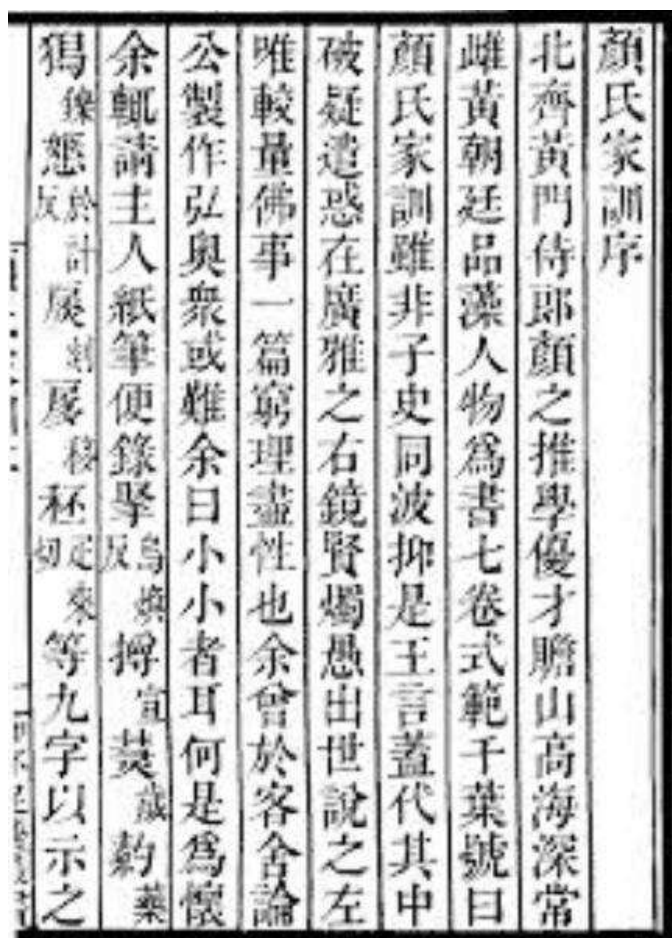 顏氏家訓序
北齊黃門侍郎顏之推學優才贍山高海深常
雌黃朝廷品藻人物爲書七卷式範千葉號曰
顏氏家訓雖非子史同波抑是王言蓋代其中
破疑遣惑在廣雅之右鏡賢燭愚出世說之左
唯較量佛事一篇窮理盡性也余曾於客舍論
公製作弘奧衆或難余曰小小者耳何是爲懷
余輒請主人紙筆便錄掔烏煥反㩅宣熒歲藥
猲獟㥣於計反扊剡扅移秠疋來切等九字以示之